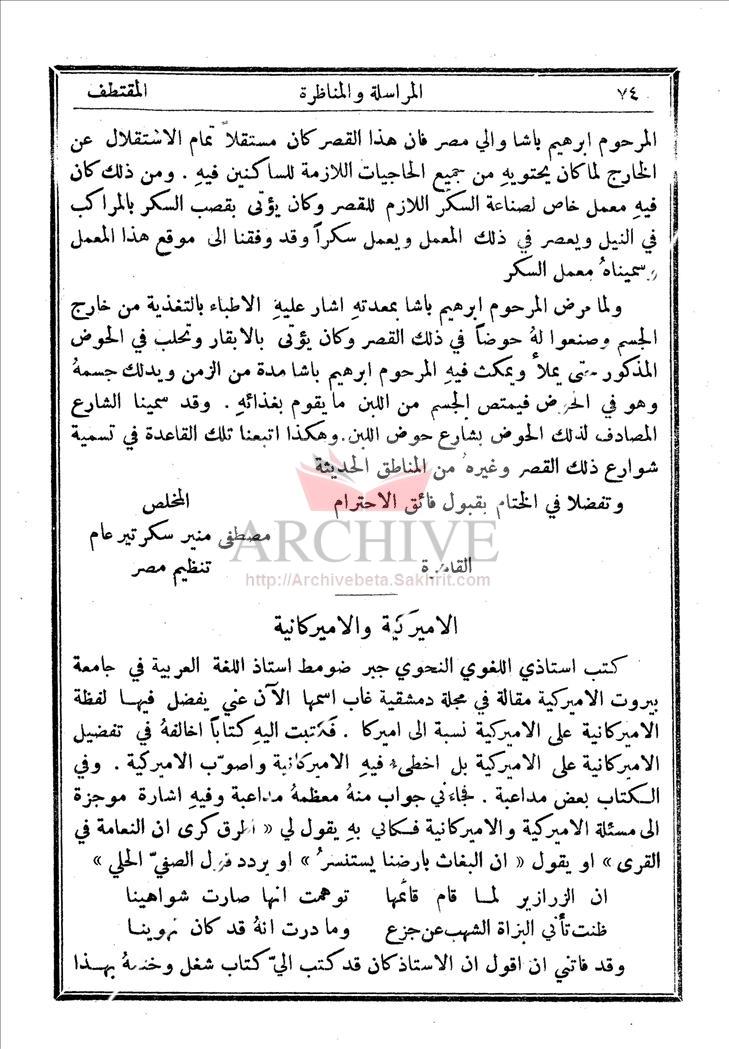 ٧٤ المراسلة والمناظرة المقتطف
المرحوم ابرهيم باشا والي مصر فان هذا القصر كان مستقلاً تمام الاستقلال عن
الخارج لما كان يحتويهِ من جميع الحاجيات اللازمة للساكنين فيهِ . ومن ذلك كان
فيهِ معمل خاص لصناعة السكر اللازم للقصر وكان يؤتى بقصب السكر بالمراكب
في النيل ويعصر في ذلك المعمل ويعمل سكراً وقد وفقنا الى موقع هذا المعمل
وسميناهُ معمل السكر
ولما مرض المرحوم ابرهيم باشا بمعدتهِ اشار عليهِ الاطباء بالتغذية من خارج
الجسم وصنعوا لهُ حوضاً في ذلك القصر وكان يؤتى بالابقار وتحلب في الحوض
المذكور حتى يملأ ويمكث فيهِ المرحوم ابرهيم باشا مدة من الزمن ويدلك جسمهُ
وهو في الحوض فيمتص الجسم من اللبن ما يقوم بغذائهِ . وقد سمينا الشارع
المصادف لذلك الحوض بشارع حوض اللبن . وهكذا اتبعنا تلك القاعدة في تسمية
شوارع ذلك القصر وغيره من المناطق الحديثة
وتفضلا في الختام بقبول فائق الاحترام المخلص
مصطفى منير سكرتير عام
القاهرة تنظيم مصر
ARCHIVE
http://Archivebeta.Sakhrit.com
الاميركية والاميركانية
كتب استاذي اللغوي النحوي جبر ضومط استاذ اللغة العربية في جامعة
بيروت الاميركية مقالة في مجلة دمشقية غاب اسمها الآن عني يفضل فيها لفظة
الاميركانية على الاميركية نسبة الى اميركا . فكتبت اليهِ كتاباً اخالفهُ في تفضيل
الاميركانية على الاميركية بل اخطىء فيهِ الاميركانية واصوّب الاميركية . وفي
الكتاب بعض مداعبة . فجاءني جواب منهُ معظمهُ مداعبة وفيهِ اشارة موجزة
الى مسئلة الاميركية والاميركانية فكاني بهِ يقول لي « اطرق كرى ان النعامة في
القرى » او يقول « ان البغاث بارضنا يستنسرُ » او يردد قول الصفيّ الحلي »
ان الزرازير لما قام قائمها توهمت انها صارت شواهينا
ظنت تأني البزاة الشهب عن جزع وما درت انهُ قد كان تهوينا
وقد فاتني ان اقول ان الاستاذ كان قد كتب اليّ كتاب شغل وختمهُ بهذا